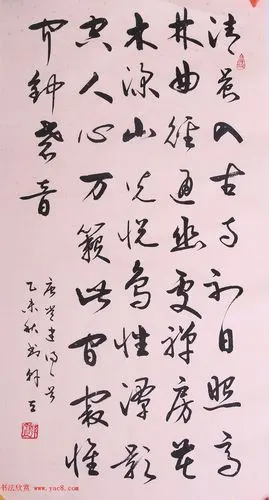 清晨入古寺初日照高
林曲径通幽处禅房花
木深山光悦鸟性潭影
空人心万籁此皆寂惟
闻钟磬音
唐常建诗
乙未秋
书法欣赏 www.yac8.com